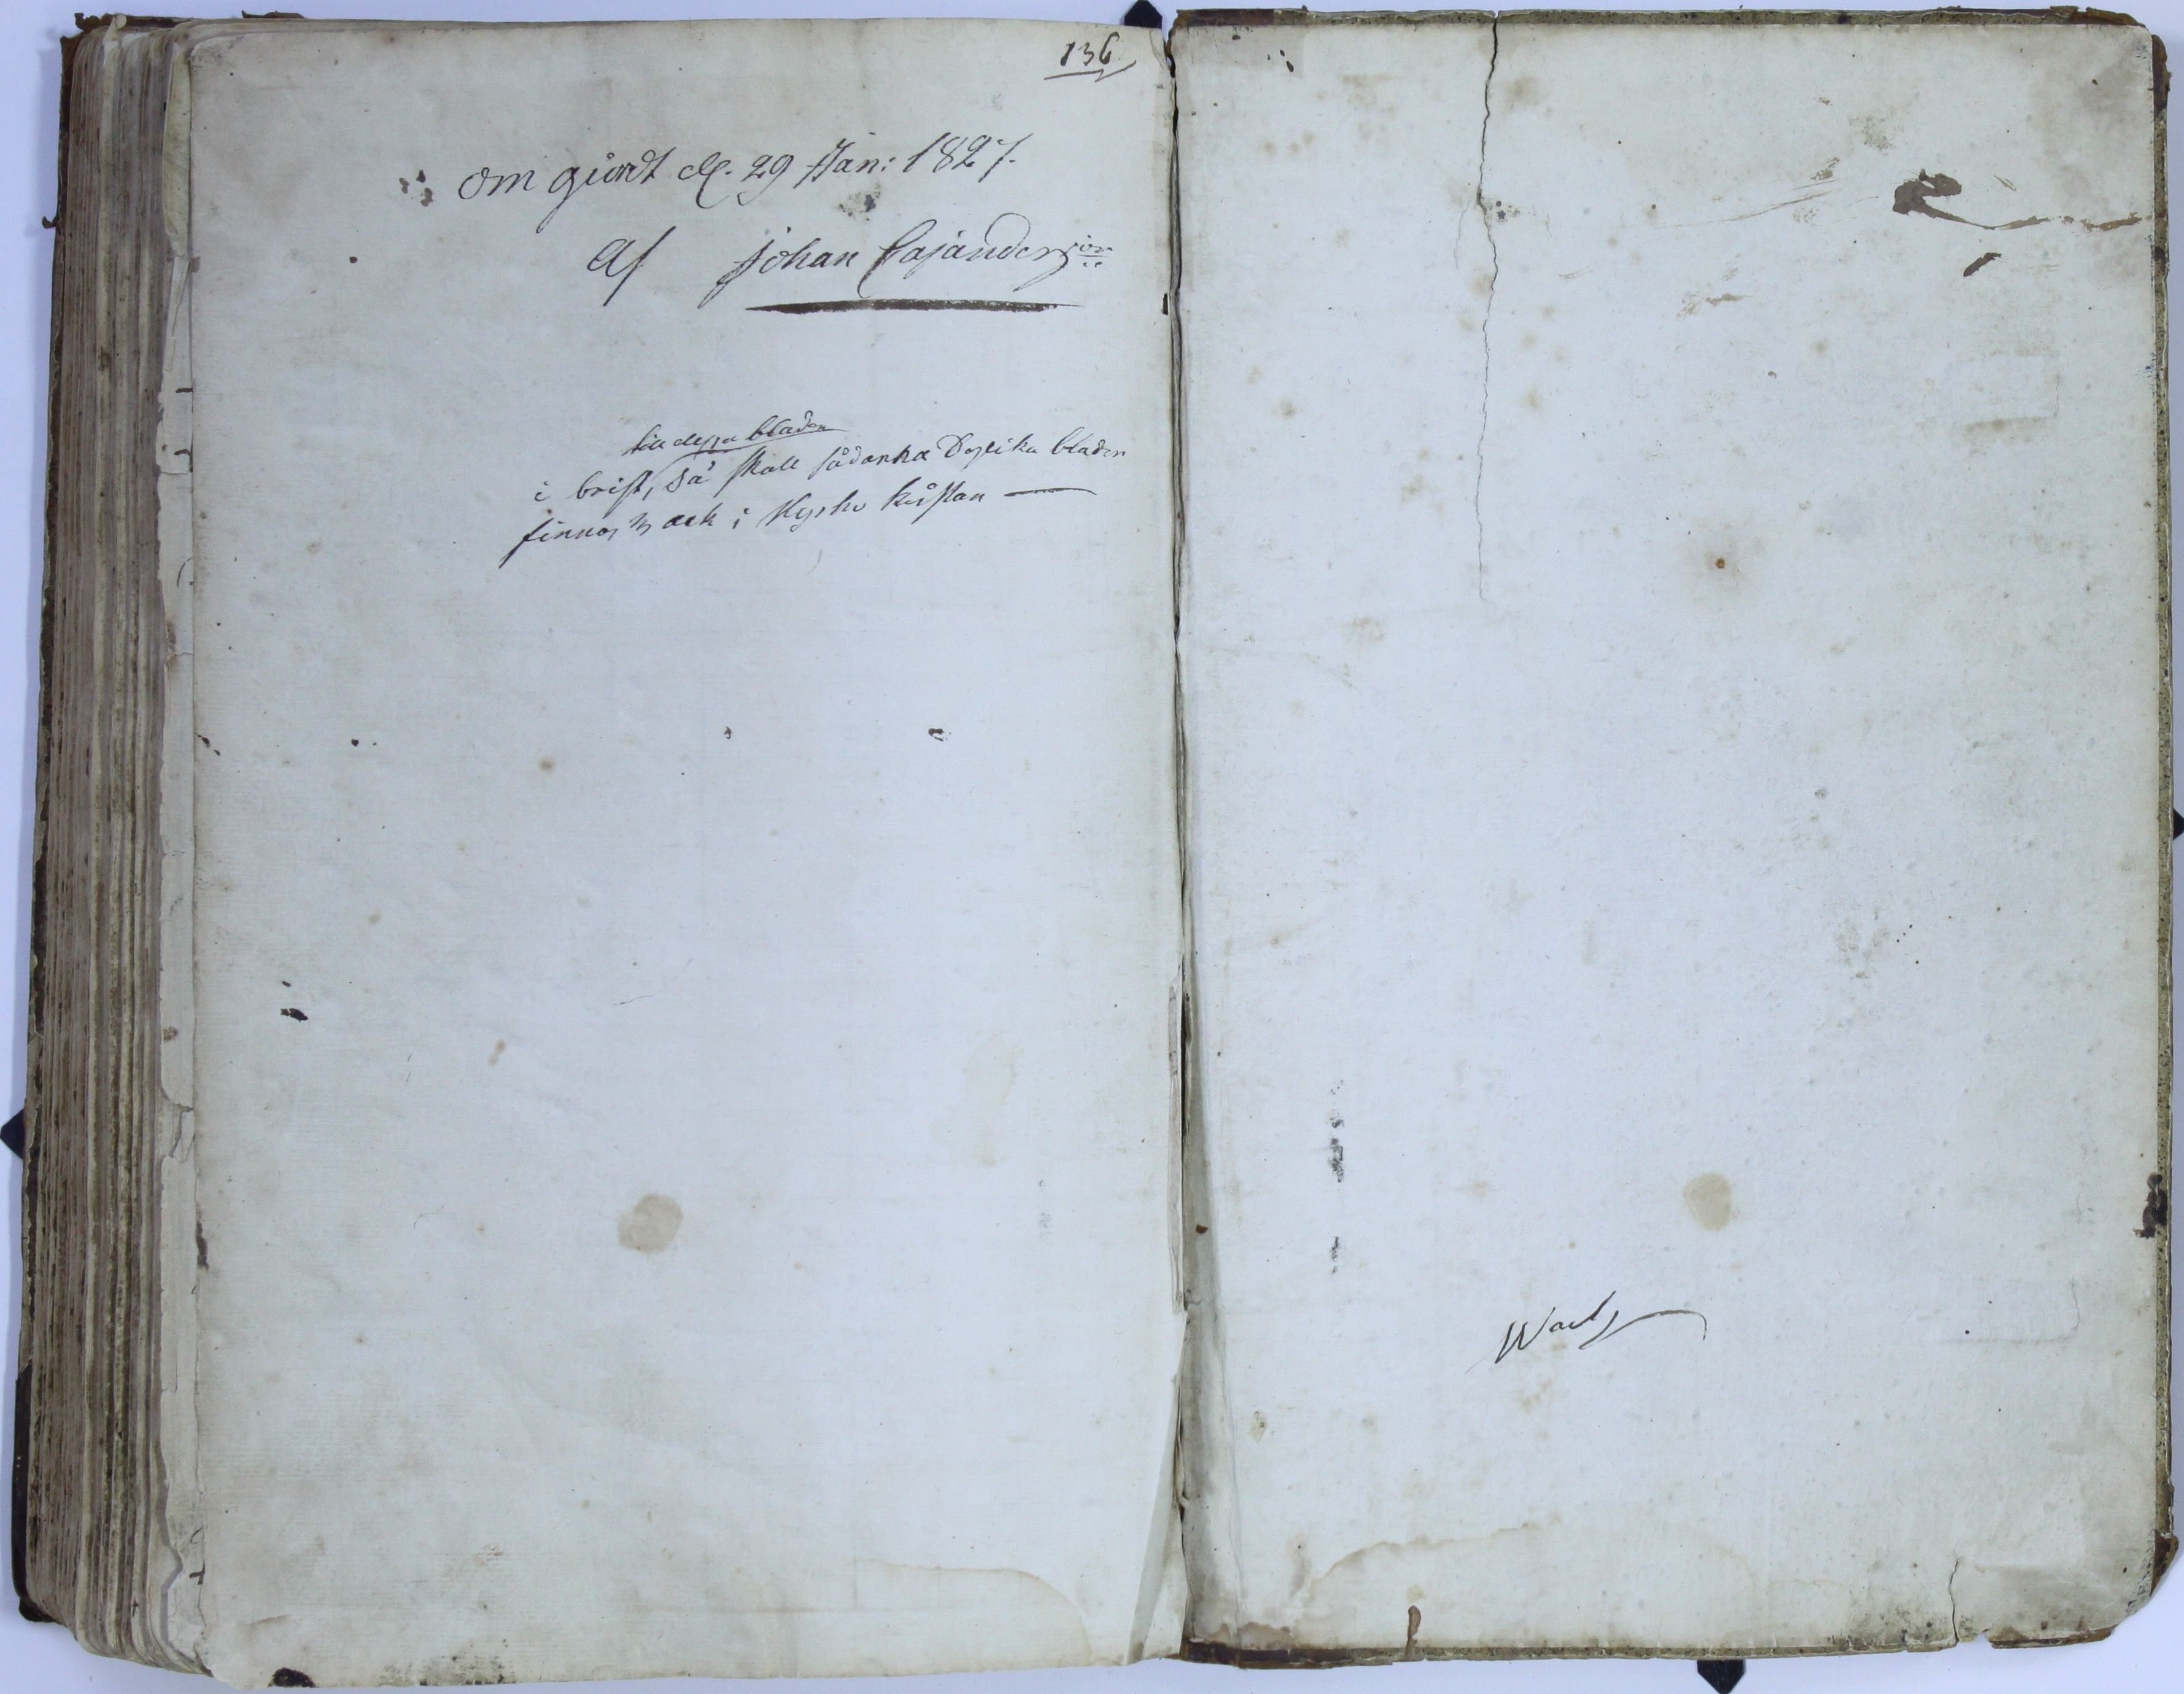 136
om giordt d. 29 Jan: 1827.
Af Johan Cajander jor
till dessa bladen
i brist, så skall sådanka Dylika bladen
finnas ark i Kyrko kistan —